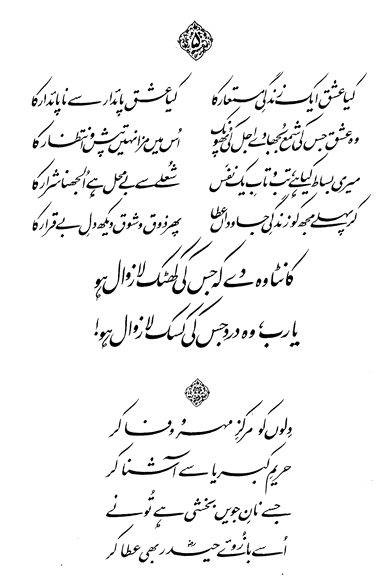 ۵
کیا عشق ایک زندگیِ مستعار کا کیا عشق پائدار سے ناپائدار کا
وہ عشق جس کی شمع بجھا دے اجل کی پھونک اُس میں مزا نہیں تپش و انتظار کا
میری بساط کیا ہے، تب و تابِ یک نفَس شُعلے سے بے محل ہے اُلجھنا شرار کا
کر پہلے مجھ کو زندگیِ جاوداں عطا پھر ذوق و شوق دیکھ دلِ بے قرار کا
کانٹا وہ دے کہ جس کی کھٹک لازوال ہو
یارب، وہ درد جس کی کسک لازوال ہو!
دِلوں کو مرکزِ مہر و وفا کر
حریمِ کبریا سے آشنا کر
جسے نانِ جویں بخشی ہے تُو نے
اُسے بازُوئے حیدرؓ بھی عطا کر